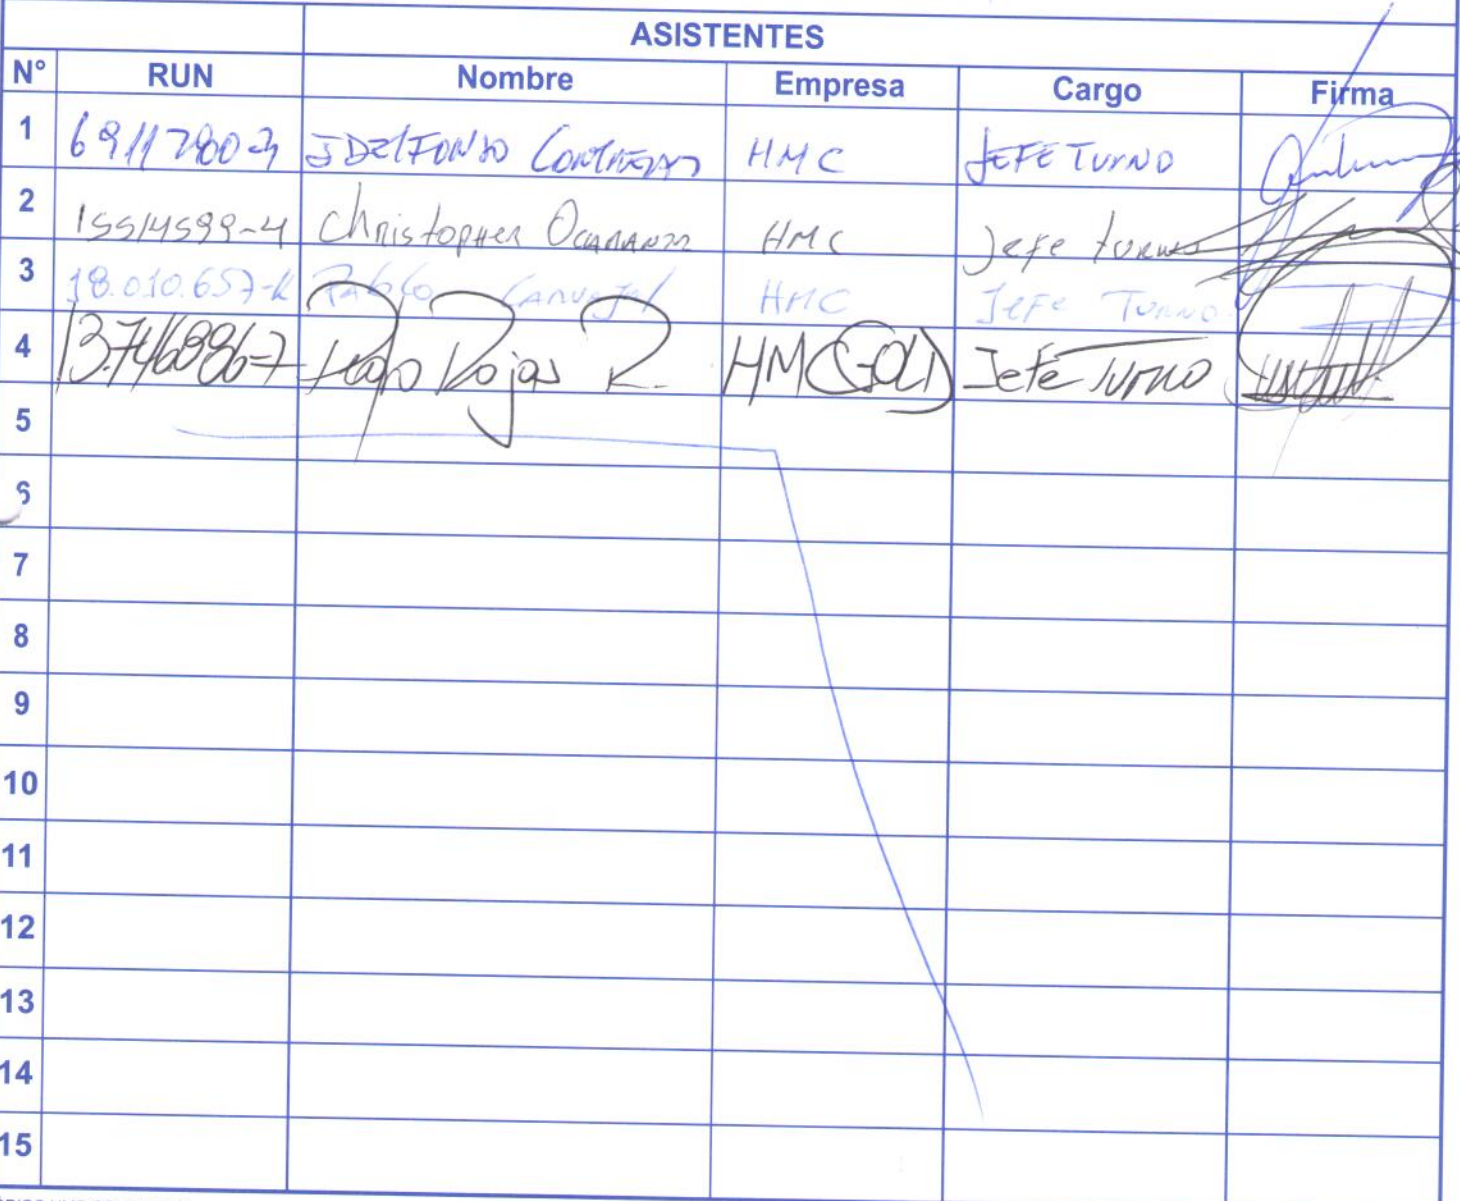 ASISTENTES
N° RUN Nombre Empresa Cargo Firma
1 6911780 IDELFONSO Contreras HMC JEFE TURNO
2 15514599-4 Christopher Ocaranza HMC Jefe turno
3 18.010.657-K Pablo Carvajal HMC Jefe Turno
4 13.746896-7 Hugo Rojas R. HMC GOLD Jefe Turno
5
6
7
8
9
10
11
12
13
14
15